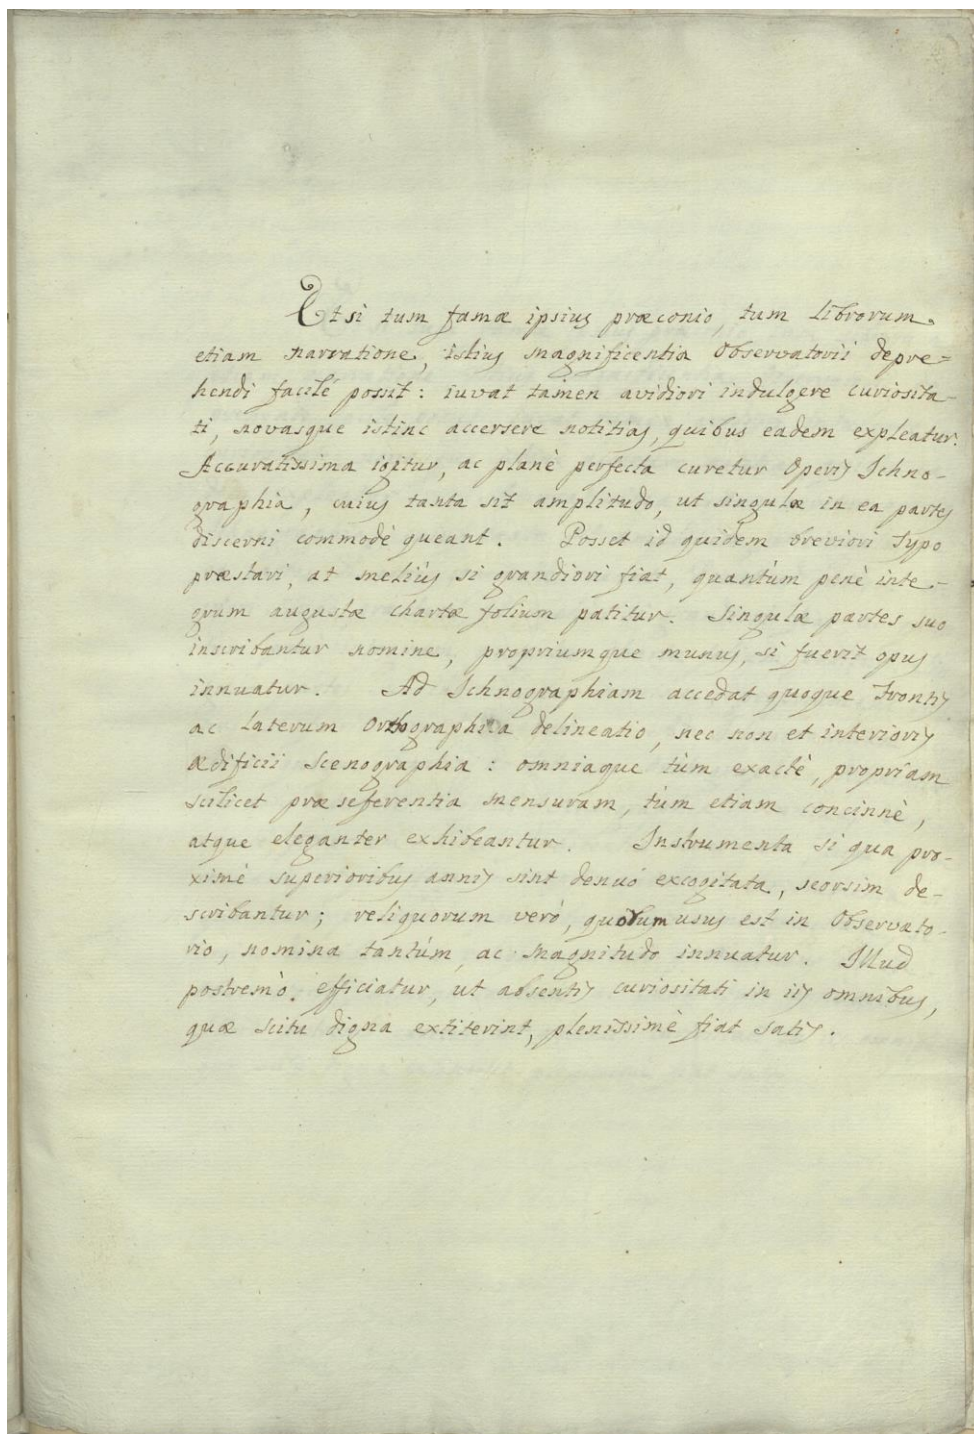 Etsi tum famæ ipsius præconio, tum librorum
etiam narratione, istius magnificentia Observatorii depre=
hendi facilè possit: iuvat tamen avidiori indulgere curiosita-
ti, novasque istinc accersere notitias, quibus eadem expleatur.
Accuratissima igitur, ac planè perfecta curetur Operis Ichno-
graphia, cuius tanta sit amplitudo, ut singulæ in ea partes
discerni commodè queant. Posset id quidem breviori Typo
præstari, at meliùs si grandiori fiat, quantùm penè inte-
grum augustæ chartæ folium patitur. Singulæ partes suo
inscribantur nomine, propriumque munus, si fuerit opus
innuatur. Ad Ichnographiam accedat quoque Frontis
ac laterum Orthographica delineatio, nec non et interioris
ædificii Scenographia: omniaque tùm exactè, propriam
scilicet præseferentia mensuram, tùm etiam concinnè,
atque eleganter exhibeantur. Instrumenta si qua pro-
ximè superioribus annis sint denuò excogitata, seorsim de-
scribantur; reliquorum verò, quorum usus est in Observato-
rio, nomina tantùm, ac magnitudo innuatur. Illud
postremò efficiatur, ut absentis curiositati in iis omnibus,
quæ scitu digna extiterint, plenissimè fiat satis.